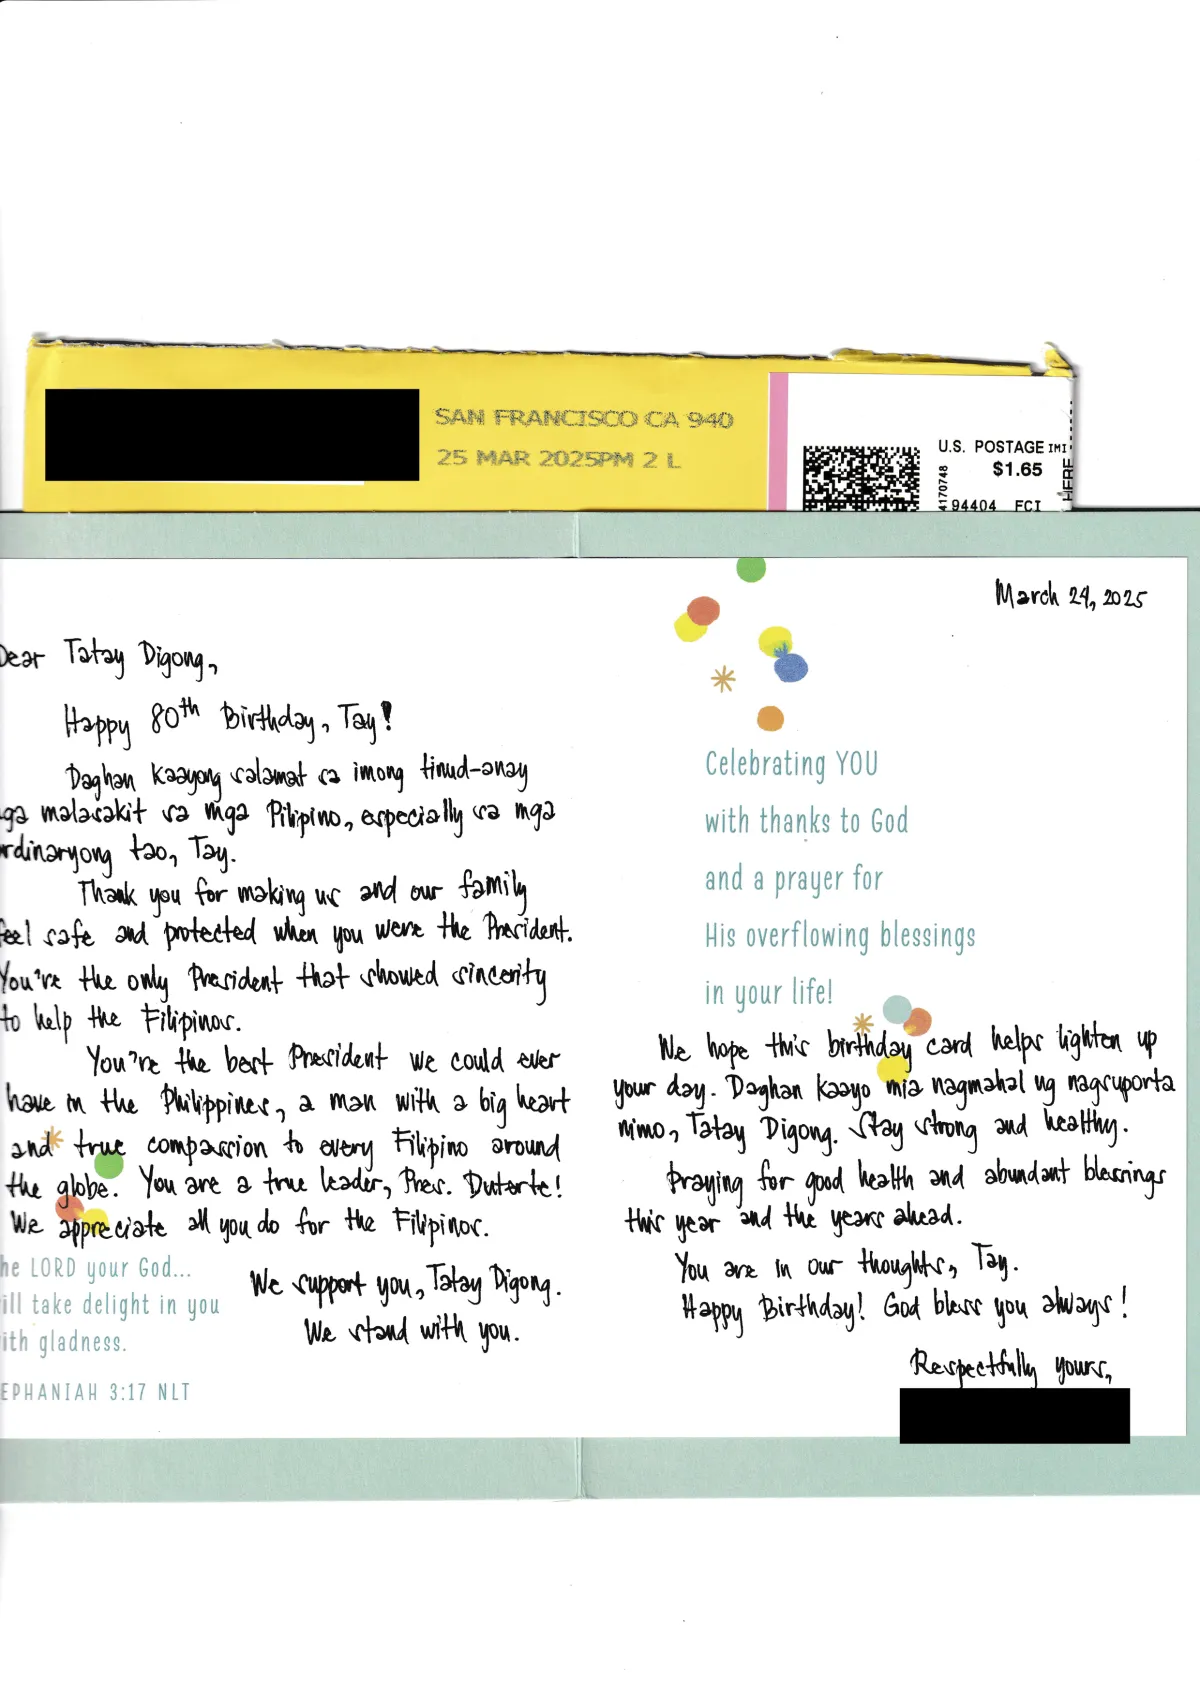 SAN FRANCISCO CA 940
25 MAR 2025PM 2 L
U.S. POSTAGE IMI
$1.65
94404 FCI
4170748
HERE
March 24, 2025
Dear Tatay Digong,
Happy 80th Birthday, Tay!
Daghan kaayong salamat sa imong tinud-anay
nga malasakit sa mga Pilipino, especially sa mga
ordinaryong tao, Tay.
Thank you for making us and our family
feel safe and protected when you were the President.
You're the only President that showed sincerity
to help the Filipinos.
You're the best President we could ever
have in the Philippines, a man with a big heart
and true compassion to every Filipino around
the globe. You are a true leader, Pres. Duterte!
We appreciate all you do for the Filipinos.
he LORD your God...
ill take delight in you
ith gladness.
EPHANIAH 3:17 NLT
We support you, Tatay Digong.
We stand with you.
Celebrating YOU
with thanks to God
and a prayer for
His overflowing blessings
in your life!
We hope this birthday card helps lighten up
your day. Daghan kaayo mia nagmahal ug nagsuporta
nimo, Tatay Digong. Stay strong and healthy.
Praying for good health and abundant blessings
this year and the years ahead.
You are in our thoughts, Tay.
Happy Birthday! God bless you always!
Respectfully yours,